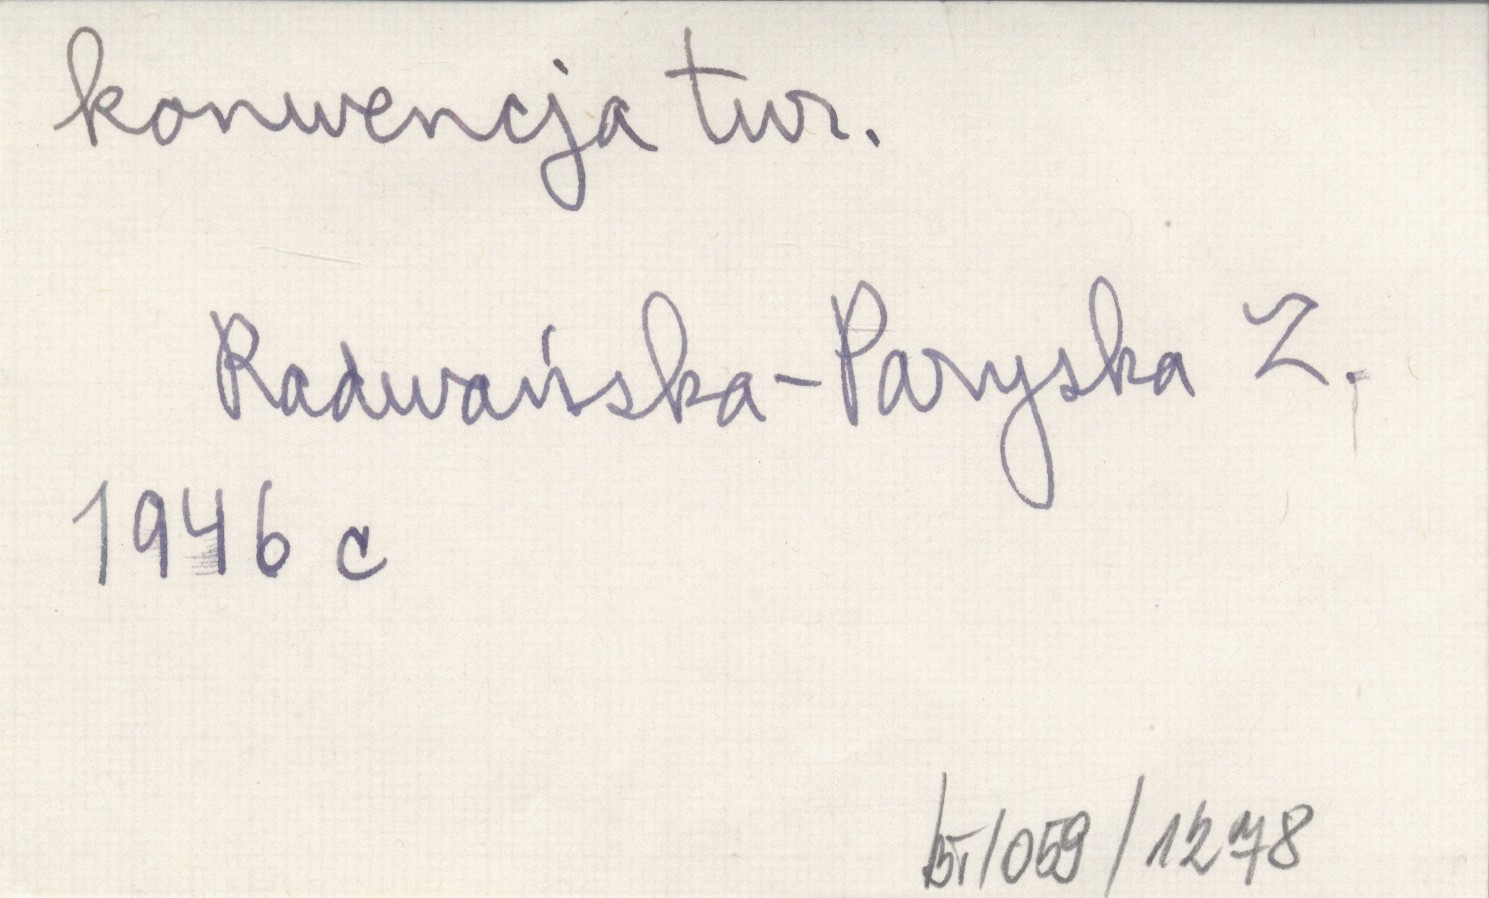 konwencja tur.
Radwańska-Paryska Z.
1946 c
/059/1278